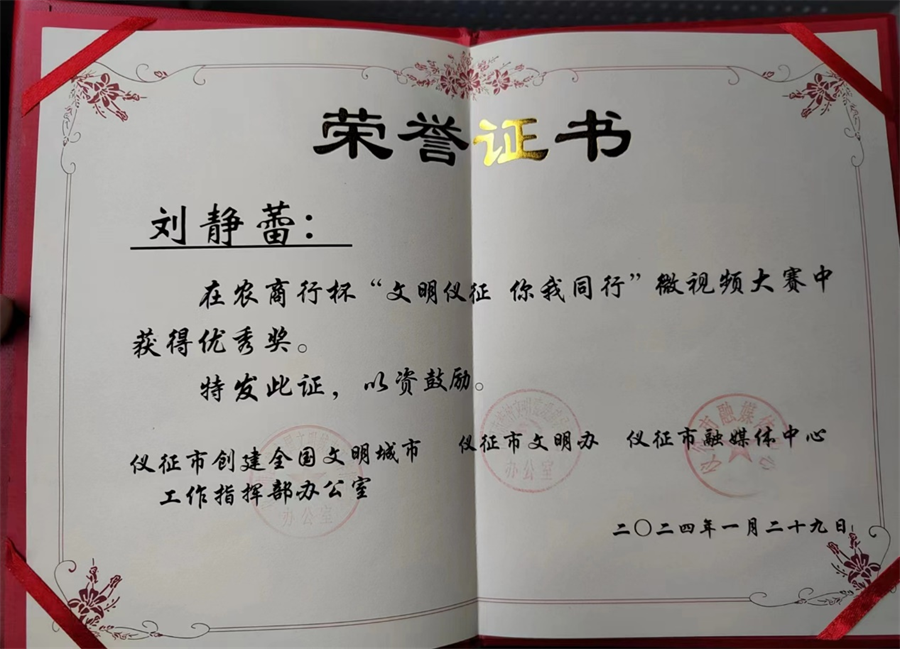 荣誉证书
刘静蕾：
在农商行杯“文明仪征 你我同行”微视频大赛中
获得优秀奖。
特发此证，以资鼓励。
仪征市创建全国文明城市
工作指挥部办公室
仪征市文明办
仪征市融媒体中心
办公室
办公室
二〇二四年一月二十九日